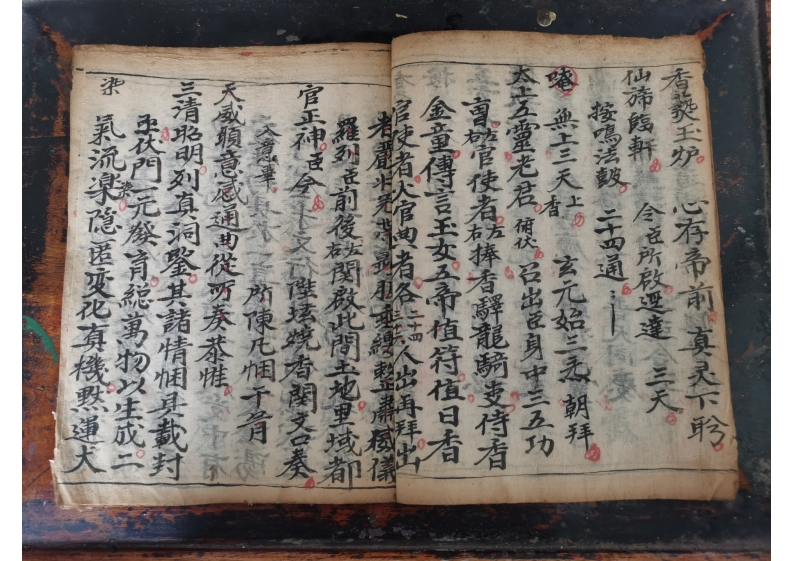 香爇玉炉 心存帝前 真灵下盼
仙斾臨軒 令臣所啟逕達 三天
按鳴法鼓 二十四通
唵 無上三天 玄元始三炁 朝拜
太上五靈老君 上香 俯伏 召出臣身中三五功
曹左右官使者左右捧香驛龍騎吏侍香
金童傳言玉女五帝值符值日香
官使者火官典者各三十六二十四人出再拜出
者嚴
羅列臣前後左右関啟此間土地里域都
官正神臣今 行陞坛焼香関文口奏
入意畢
天威頭意感通曲從所奏恭惟 所陳凡悃干冒
三清昭明列真洞鑒其諸情悃具載封
伏門一元發育総萬物以生成二
染
氣流樂隐匿变化真機黙運大
染